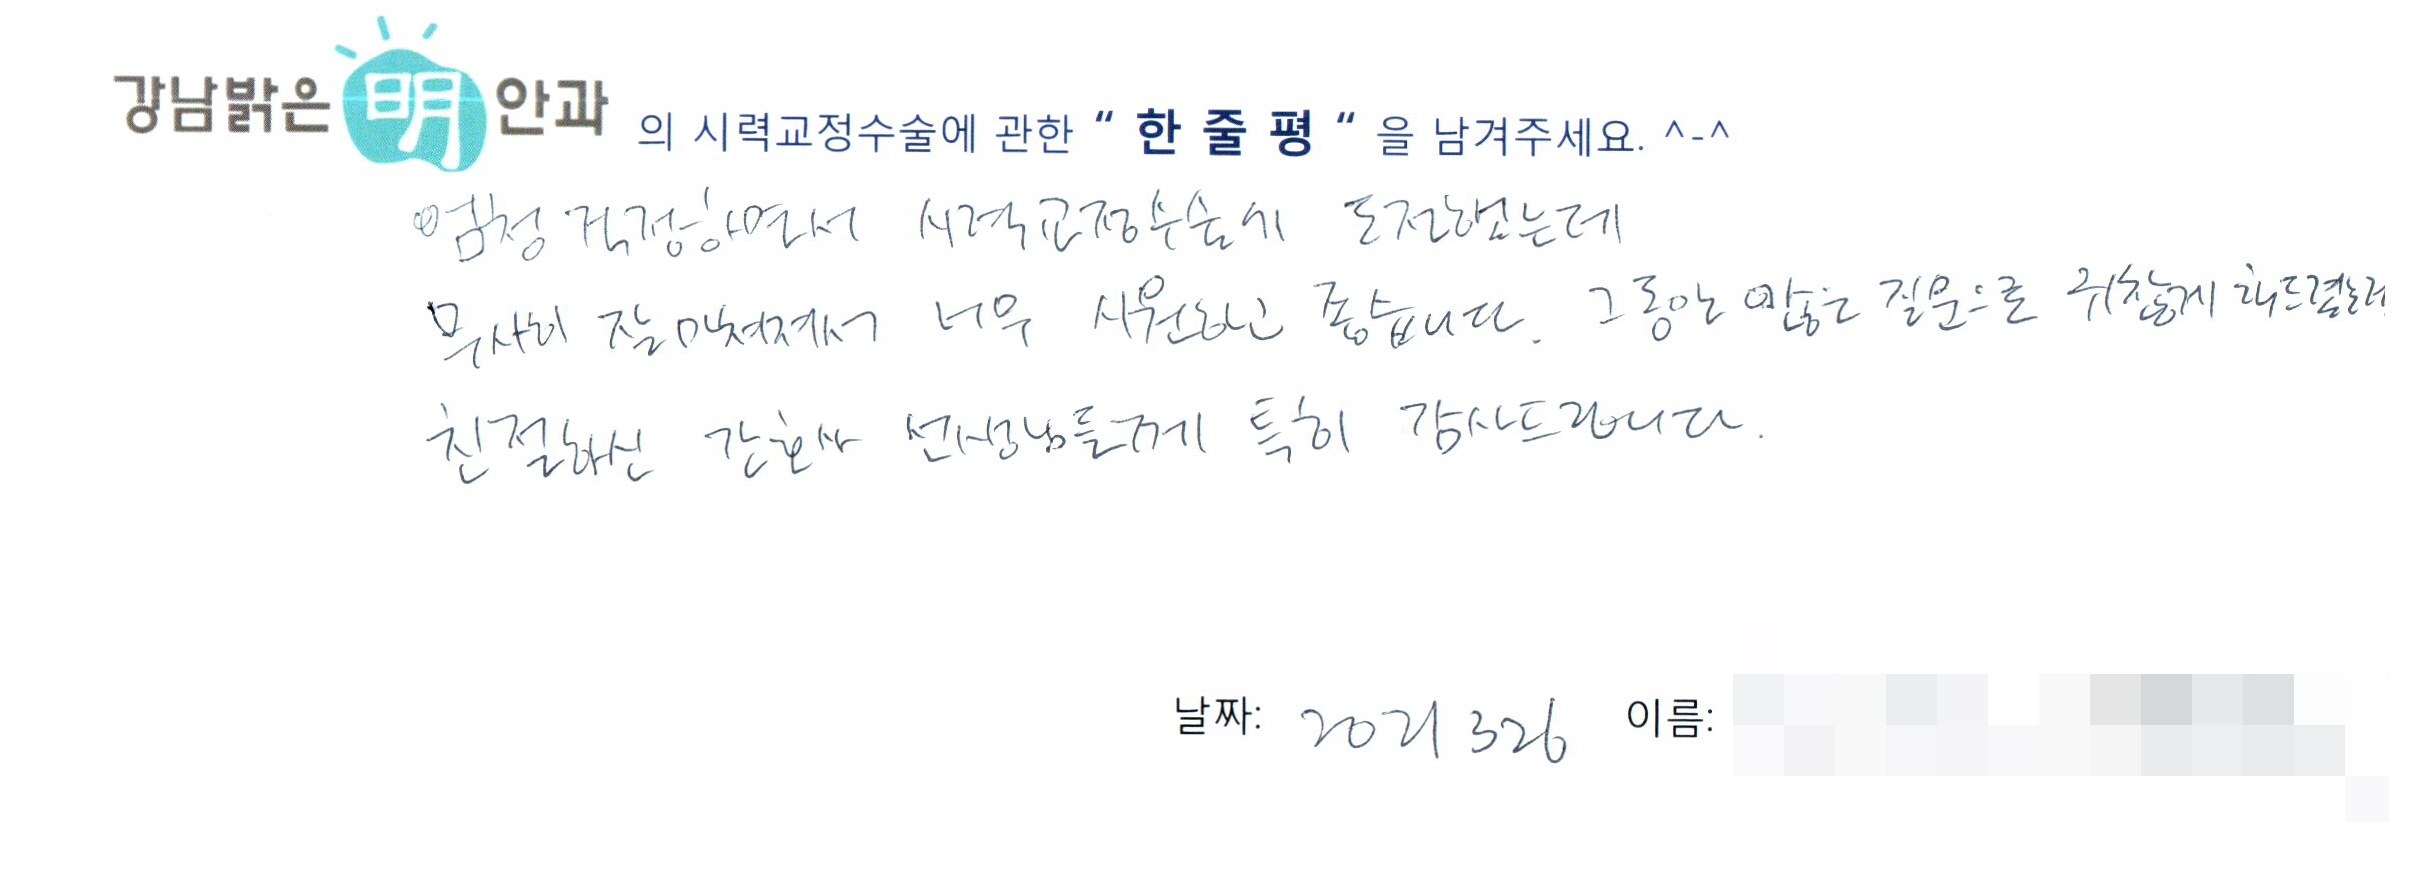 강남밝은明안과 의 시력교정수술에 관한 “ 한 줄 평 “ 을 남겨주세요. ^-^
엄청 걱정하면서 시력교정수술에 도전했는데
무사히 잘 마쳐져서 너무 시원하고 좋습니다. 그동안 많은 질문으로 귀찮게 해드렸는데
친절하신 간호사 선생님들께 특히 감사드립니다.
날짜: 2021 326 이름: